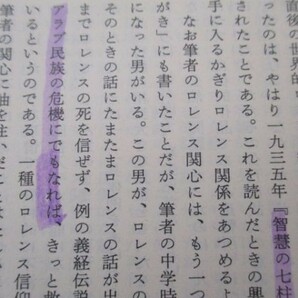 直後の世界的
ったのは、やはり一九三五年『智慧の七柱
されたことである。これを読んだときの興
手に入るかぎりロレンス関係をあつめるよ
なお筆者のロレンス関心には、もう一つ
がき」にも書いたことだが、筆者の中学時
になった男がいる。この男が、ロレンスの
そのときの話にたまたまロレンスの話が出
までロレンスの死を信ぜず、例の義経伝説
アラブ民族の危機にでもなれば、きっと救
いるというのである。一種のロレンス信仰
筆者の関心に油を注いだことは